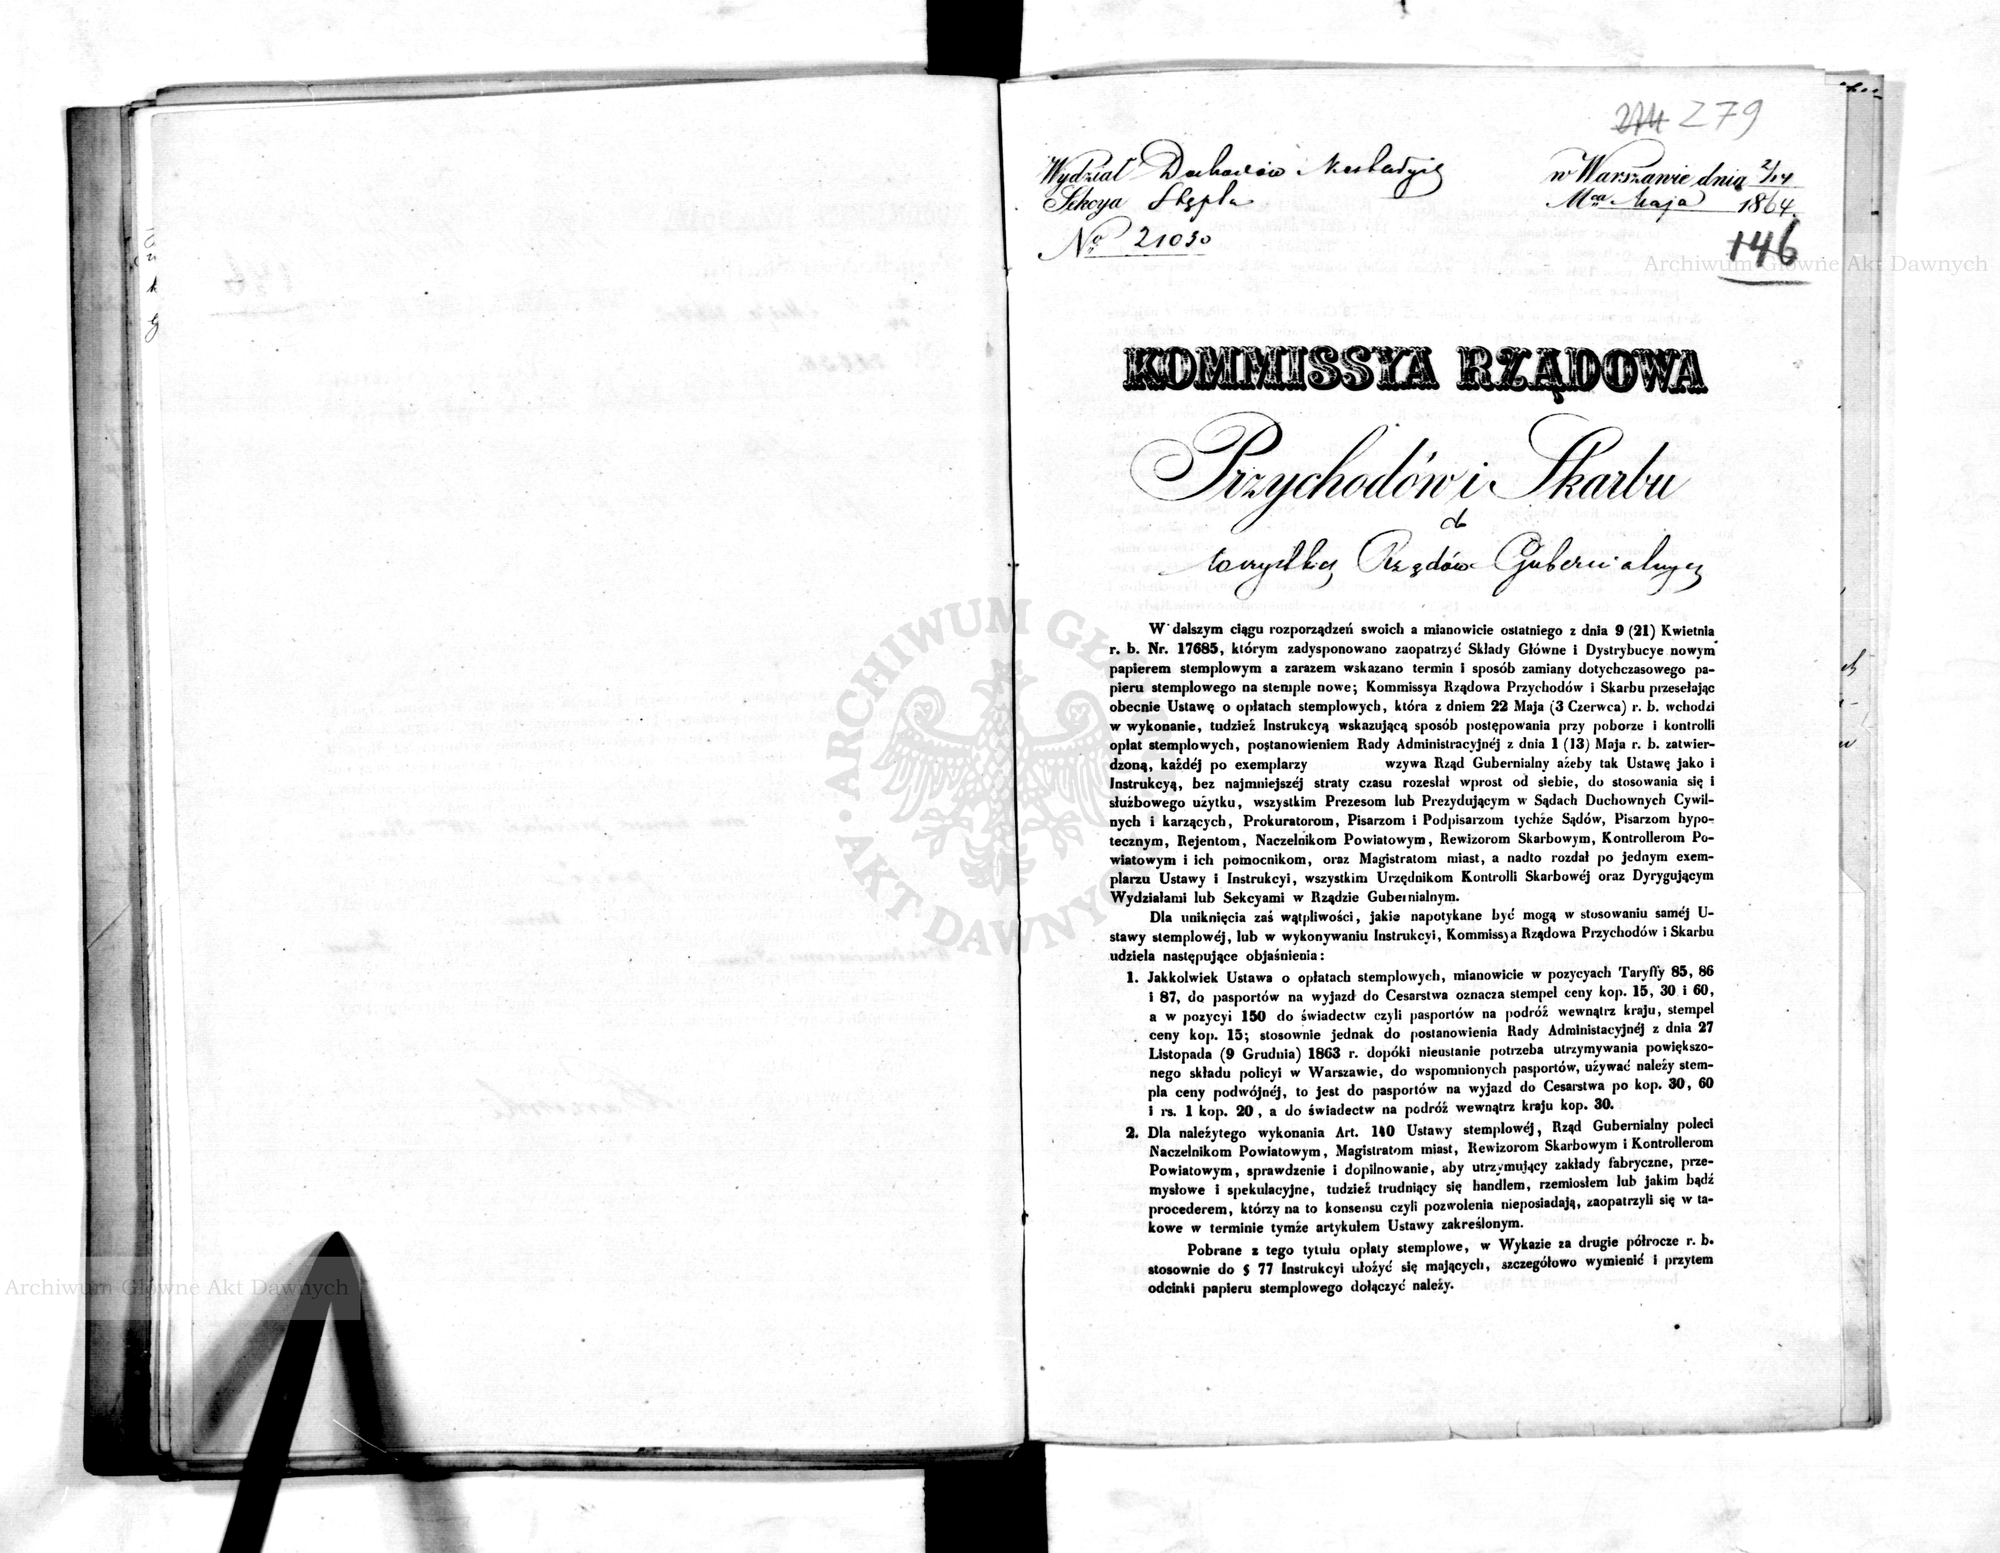 279
Wydział Dochodów Niestałych
w Warszawie dnia 2/14
Sekcya Stępla
Mca Maja 1864.
No 21030
146
KOMMISSYA RZĄDOWA
Przychodów i Skarbu
do
wszystkich Rządów Gubernialnych
W dalszym ciągu rozporządzeń swoich a mianowicie ostatniego z dnia 9 (21) Kwietnia
r. b. Nr. 17685, którym zadysponowano zaopatrzyć Składy Główne i Dystrybucye nowym
papierem stemplowym a zarazem wskazano termin i sposób zamiany dotychczasowego pa-
pieru stemplowego na stemple nowe; Kommissya Rządowa Przychodów i Skarbu przesełając
obecnie Ustawę o opłatach stemplowych, która z dniem 22 Maja (3 Czerwca) r. b. wchodzi
w wykonanie, tudzież Instrukcyą wskazującą sposób postępowania przy poborze i kontrolli
opłat stemplowych, postanowieniem Rady Administracyjnéj z dnia 1 (13) Maja r. b. zatwier-
dzoną, każdéj po exemplarzy wzywa Rząd Gubernialny ażeby tak Ustawę jako i
Instrukcyą, bez najmniejszéj straty czasu rozesłał wprost od siebie, do stosowania się i
służbowego użytku, wszystkim Prezesom lub Prezydującym w Sądach Duchownych Cywil-
nych i karzących, Prokuratorom, Pisarzom i Podpisarzom tychże Sądów, Pisarzom hypo-
tecznym, Rejentom, Naczelnikom Powiatowym, Rewizorom Skarbowym, Kontrollerom Po-
wiatowym i ich pomocnikom, oraz Magistratom miast, a nadto rozdał po jednym exem-
plarzu Ustawy i Instrukcyi, wszystkim Urzędnikom Kontrolli Skarbowéj oraz Dyrygującym
Wydziałami lub Sekcyami w Rządzie Gubernialnym.
Dla uniknięcia zaś wątpliwości, jakie napotykane być mogą w stosowaniu saméj U-
stawy stemplowéj, lub w wykonywaniu Instrukcyi, Kommissya Rządowa Przychodów i Skarbu
udziela następujące objaśnienia:
1. Jakkolwiek Ustawa o opłatach stemplowych, mianowicie w pozycyach Taryffy 85, 86
i 87, do pasportów na wyjazd do Cesarstwa oznacza stempel ceny kop. 15, 30 i 60,
a w pozycyi 150 do świadectw czyli pasportów na podróż wewnątrz kraju, stempel
ceny kop. 15; stosownie jednak do postanowienia Rady Administacyjnéj z dnia 27
Listopada (9 Grudnia) 1863 r. dopóki nieustanie potrzeba utrzymywania powiększo-
nego składu policyi w Warszawie, do wspomnionych pasportów, używać należy stem-
pla ceny podwójnéj, to jest do pasportów na wyjazd do Cesarstwa po kop. 30, 60
i rs. 1 kop. 20, a do świadectw na podróż wewnątrz kraju kop. 30.
2. Dla należytego wykonania Art. 140 Ustawy stemplowéj, Rząd Gubernialny poleci
Naczelnikom Powiatowym, Magistratom miast, Rewizorom Skarbowym i Kontrollerom
Powiatowym, sprawdzenie i dopilnowanie, aby utrzymujący zakłady fabryczne, prze-
mysłowe i spekulacyjne, tudzież trudniący się handlem, rzemiosłem lub jakim bądź
procederem, którzy na to konsensu czyli pozwolenia nieposiadają, zaopatrzyli się w ta-
kowe w terminie tymże artykułem Ustawy zakreślonym.
Pobrane z tego tytułu opłaty stemplowe, w Wykazie za drugie półrocze r. b.
stosownie do § 77 Instrukcyi ułożyć się mających, szczegółowo wymienić i przytem
odcinki papieru stemplowego dołączyć należy.
Archiwum Główne Akt Dawnych
Archiwum Główne Akt Dawnych
ARCHIWUM GŁÓWNE AKT DAWNYCH